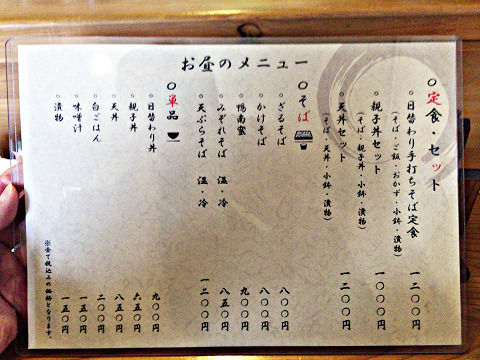 お昼のメニュー
○定食・セット
○日替わり手打ちそば定食 一二〇〇円
(そば・ご飯・おかず・小鉢・漬物)
○親子丼セット 一〇〇〇円
(そば・親子丼・小鉢・漬物)
○天丼セット 一二〇〇円
(そば・天丼・小鉢・漬物)
○そば
○ざるそば 八〇〇円
○かけそば 八〇〇円
○鴨南蛮 九〇〇円
○みぞれそば 温・冷 八五〇円
○天ぷらそば 温・冷 一二〇〇円
○単品
○日替わり丼 九〇〇円
○親子丼 六五〇円
○天丼 八五〇円
○白ごはん 二〇〇円
○味噌汁 一五〇円
○漬物 一五〇円
※全て税込みの価格となります。